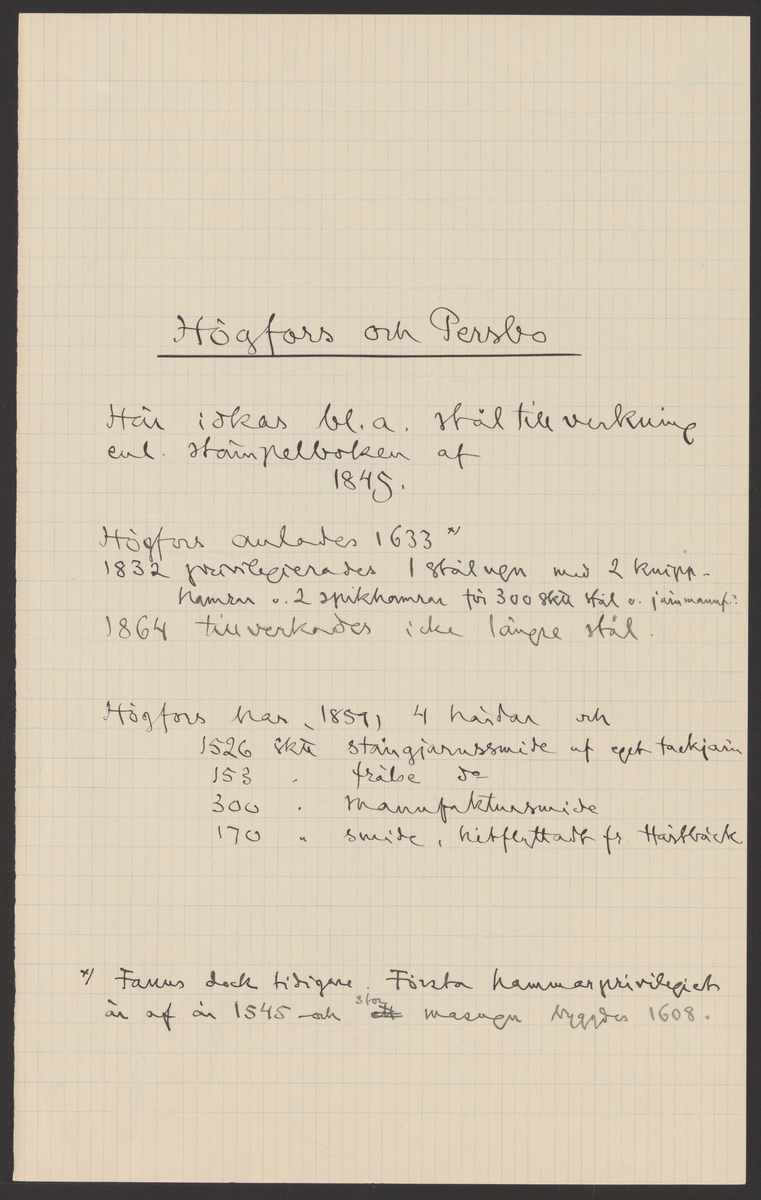 Högfors och Persbo
Här idkas bl.a. ståltillverkning
enl. stämpelboken af
1845.
Högfors anlades 1633 */
1832 privilegierades 1 stålugn med 2 knipp-
hamrar o. 2 spikhamrar för 300 sk℔ stål o. järnmanuf.:
1864 tillverkades icke längre stål.
Högfors har, 1859, 4 härdar och
1526 sk℔ stångjärnssmide af eget tackjärn
153 " frälse do
300 " manufaktursmide
170 " smide, hitflyttadt fr. Hästbäck
*/ Fanns dock tidigare. Första hammarprivilegiet
är af år 1545 och stor masugn byggdes 1608.